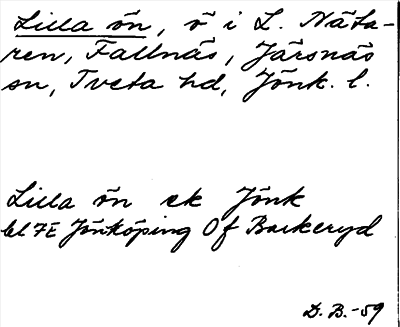 Lilla ön, ö i L. Näta-
ren, Fallnäs, Järsnäs
sn, Tveta hd, Jönk. l.
Lilla ön ek Jönk
bl 7E Jönköping Of Barkeryd
D. B. -59